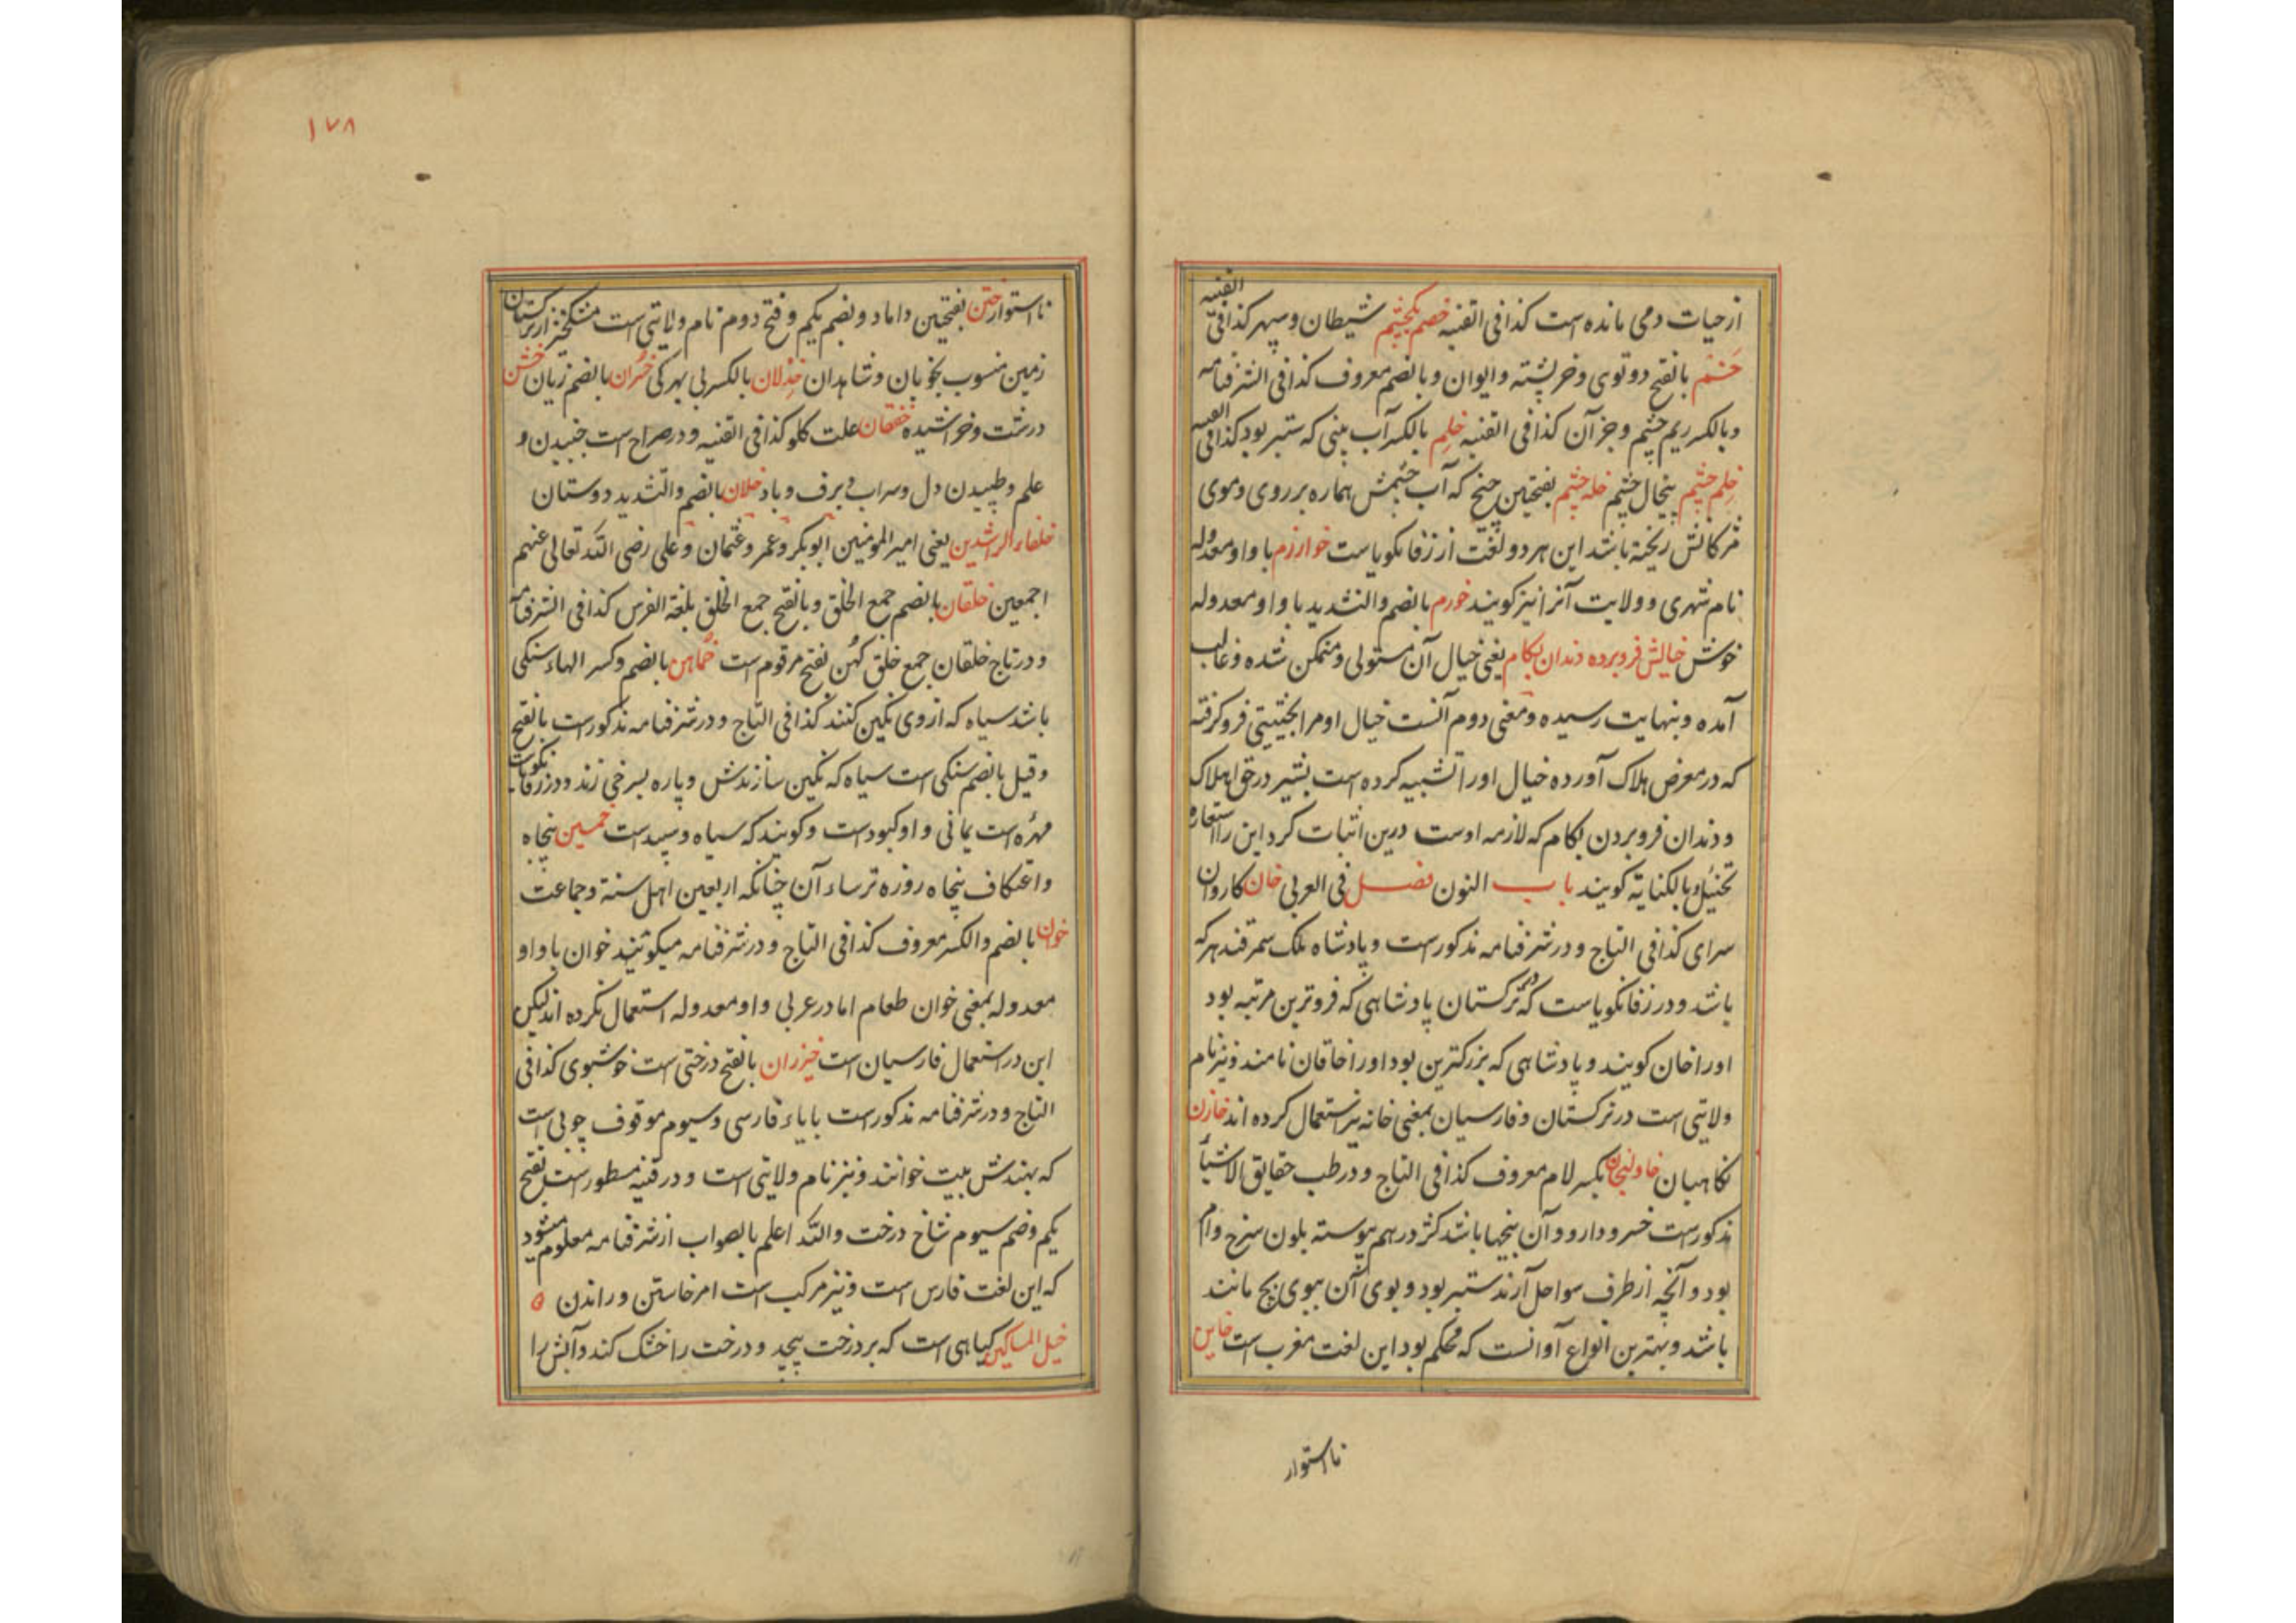 از حیات دمی مانده است کذا فی القنیه خصم بکچشم شیطان و سپهر کذا فی القنیه
خَشم بالفتح دوتوی و خرپشته و ایوان و بالضم معروف کذا فی الشرفنامه
و بالکسر ریم چشم و جز آن کذا فی القنیه خلم بالکسر آب بینی که ستبر بود کذا فی القنیه
خلم چشم پیخال چشم خله چشم بفتحتین چنج که آب چشمش هماره بر روی و موی
مژکانش ریخته باشد این هر دو لغت از زفانکویاست خوارزم با واو معدوله
نام شهری و ولایت آنرا نیز کویند خورم بالضم والتشدید با واو معدوله
خوش خیالش فرو برده دندان بکام یعنی خیال آن مستولی و متمکن شده و غالب
آمده و بنهایت رسیده و معنی دوم آنست خیال او مرا بحیثیتی فرو کرفته
که در معرض هلاک آورده خیال او را تشبیه کرده است بشیر در حق اهلاک
و دندان فرو بردن بکام که لازمه اوست درین اثبات کرد این را استعاره
تخییل و بالکنایة کویند باب النون فصل فی العربی خان کاروان
سرای کذا فی التاج و در شرفنامه مذکورست و پادشاه ملک سمرقند هر که
باشد و در زفانکویاست که در ترکستان پادشاهی که فروترین مرتبه بود
او را خان کویند و پادشاهی که بزرکترین بود او را خاقان نامند و نیز نام
ولایتی است در ترکستان و فارسیان بمعنی خانه نیز استعمال کرده اند خازن
نکاهبان خاولنجان بکسر لام معروف کذا فی التاج و در طب حقایق الاشیاء
مذکورست خسرو دارو و آن بیخها باشد کژ در هم پیوسته بلون سرخ وام
بود و آنچه از طرف سواحل آرند ستبر بود و بوی آن ببوی بج مانند
باشد و بهترین انواع او آنست که محکم بود این لغت مغرب است خاین
نااستوار
۱۷۸
نااستوار ختن بفتحتین داماد و بضم یکم و فتح دوم نام ولایتی است مشکخیز از ترکستان
زمین منسوب بخوبان و شاهدان خذلان بالکسر بی بهرکی خسران بالضم زیان خشن
درشت و خراشیده خفقان علت کلو کذا فی القنیه و در صراح است جنبیدن و
علم و طپیدن دل و سراب و برف و باد خلان بالضم والتشدید دوستان
خلفاء الراشدین یعنی امیر المومنین ابوبکر و عمر و عثمان و علی رضی الله تعالی عنهم
اجمعین خلقان بالضم جمع الخلق و بالفتح جمع الخلق بلغة الفرس کذا فی الشرفنامه
و در تاج خلقان جمع خلق کهن بفتح مرقوم است خماهن بالضم و کسر الهاء سنکی
باشد سیاه که از وی نکین کنند کذا فی التاج و در شرفنامه مذکورست بالفتح
و قیل بالضم سنکی است سیاه که نکین سازندش و پاره بسرخی زند و در زفانکویاست
مهره است یمانی و او کبودست و کویند که سیاه و سپیدست خمسین پنجاه
و اعتکاف پنجاه روزه ترساء آن چنانکه اربعین اهل سنة و جماعت
خوان بالضم والکسر معروف کذا فی التاج و در شرفنامه میکوید خوان با واو
معدوله بمعنی خوان طعام اما در عربی واو معدوله استعمال نکرده اند لیکن
این در استعمال فارسیان است خیزران بالفتح درختی است خوشبوی کذا فی
التاج و در شرفنامه مذکورست با یاء فارسی و سیوم موقوف چوبی است
که بهندش بیت خوانند و نیز نام ولایتی است و در قنیه مسطور است بفتح
یکم و ضم سیوم شاخ درخت والله اعلم بالصواب از شرفنامه معلوم میشود
که این لغت فارس است و نیز مرکب است امر خاستن و راندن ه
خیل المساکین کیاهی است که بر درخت پیچد و درخت را خشک کند و آبش را